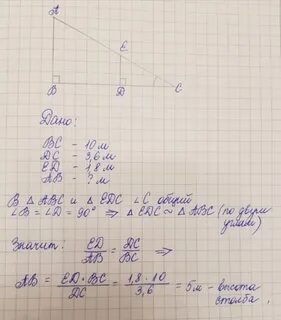 A
E
B
D
C
Дано:
BC - 10 м
DC - 3,6 м
ED - 1,8 м
AB - ? м
В △ ABC и △ EDC ∠C общий
∠B = ∠D = 90° ⇒ △ EDC ~ △ ABC (по двум
углам)
Значит: ED/AB = DC/BC ⇒
AB = ED·BC/DC = 1,8·10/3,6 = 5м - высота
столба.